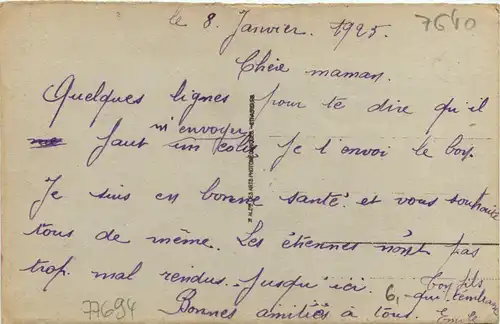 le 8. Janvier. 1925.
7640
Chère maman.
Quelques lignes pour te dire qu'il
m'envoyer
faut un colis je t'envoi le bon.
Je suis en bonne santé. et vous souhaite
tous de même. Les étrennes n'ont pas
trop. mal rendus. Jusqu'ici.
Ton fils
6, qui t'embrasse
Bonnes amitiés à tous.
77694